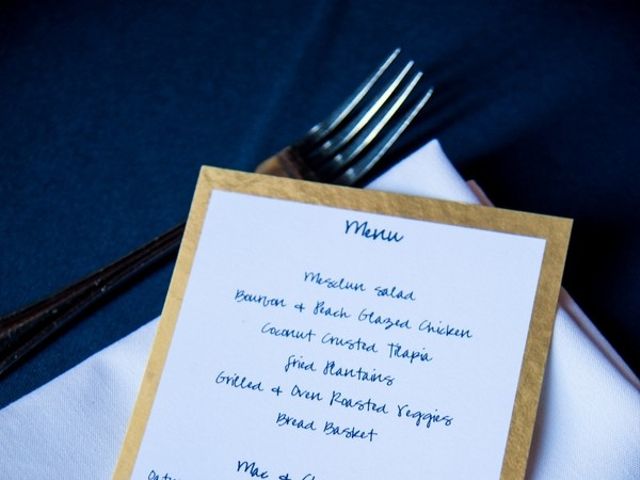 Menu
Mesclun Salad
Bourbon & Peach Glazed Chicken
Coconut Crusted Tilapia
Fried Plantains
Grilled & Oven Roasted Veggies
Bread Basket
Mac &